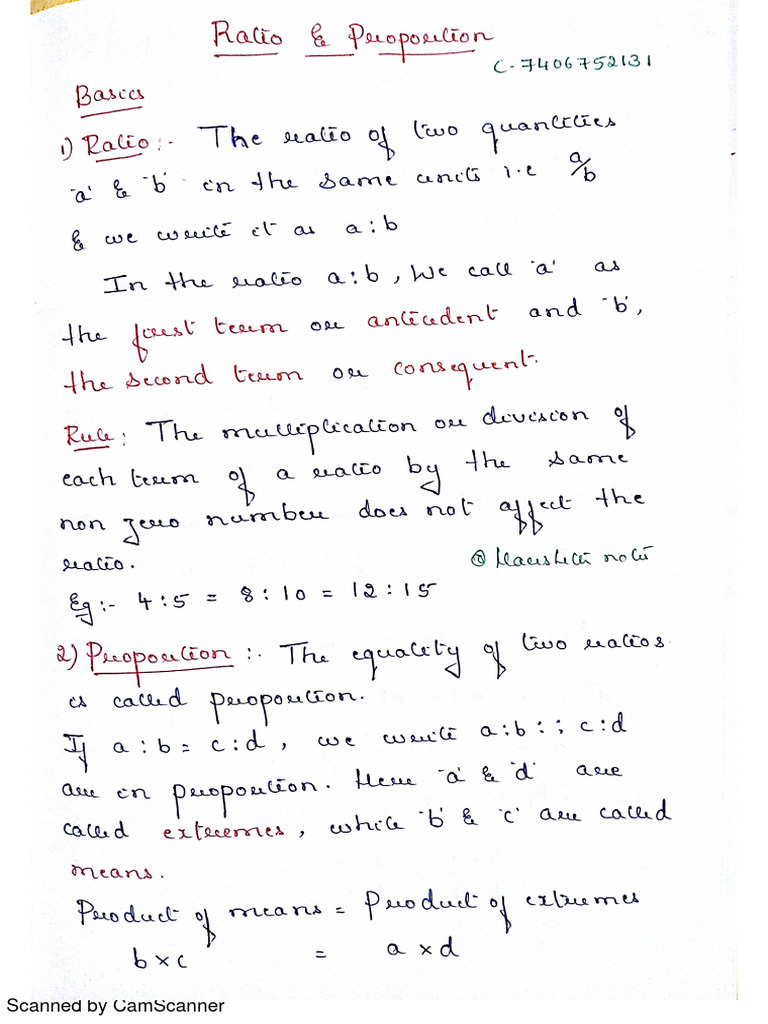 Ratio & Proportion
C-7406752131
Basics
1) Ratio:- The ratio of two quantities
'a' & 'b' in the same units i.e a/b
& we write it as a:b
In the ratio a:b, We call 'a' as
the first term or anticedent and 'b',
the second term or consequent.
Rule: The multiplication or division of
each term of a ratio by the same
non zero number does not affect the
ratio.
Eg:- 4:5 = 8:10 = 12:15
2) Proportion:- The equality of two ratios
is called proportion.
If a:b = c:d, we write a:b::c:d
are in proportion. Here 'a' & 'd' are
called extremes, while 'b' & 'c' are called
means.
Product of means = Product of extremes
b×c = a×d
Scanned by CamScanner